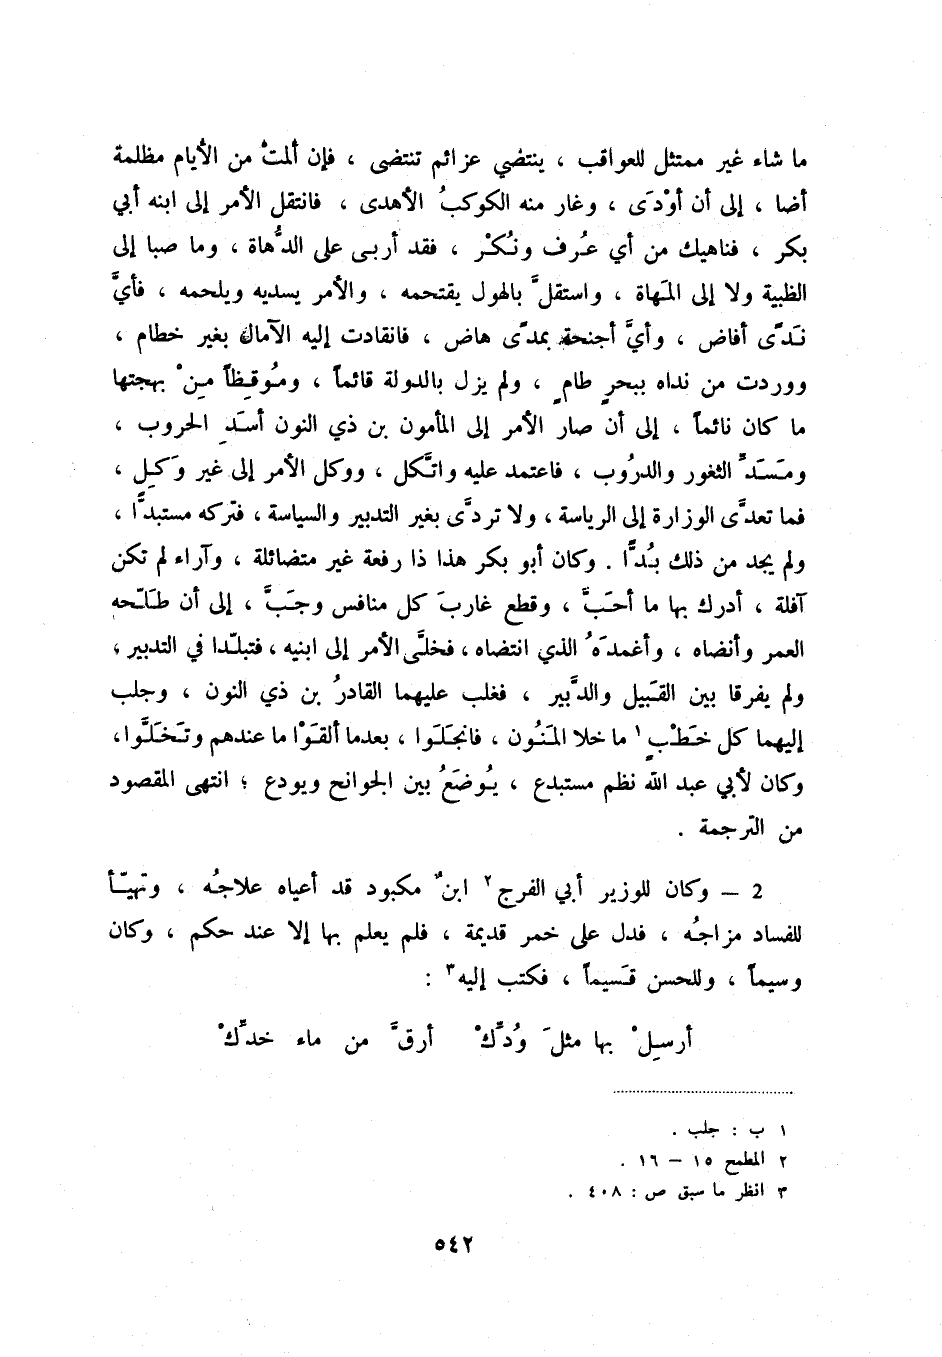 ما شاء غير ممتثل للعواقب ، ينتضي عزائم تنتضى ، فإن ألمتْ من الأيام مظلمة
أضا ، إلى أن أوْدَى ، وغار منه الكوكبُ الأهدى ، فانتقل الأمر إلى ابنه أبي
بكر ، فناهيك من أي عُرف ونُكْر ، فقد أربى على الدُّهاة ، وما صبا إلى
الظبية ولا إلى المَهاة ، واستقلَّ بالهول يقتحمه ، والأمر يسديه ويلحمه ، فأيَّ
نَدًى أفاض ، وأيَّ أجنحة بمدًى هاض ، فانقادت إليه الآمال بغير خطام ،
ووردت من نداه ببحرٍ طامٍ ، ولم يزل بالدولة قائماً ، ومُوقِظاً مِنْ بهجتها
ما كان نائماً ، إلى أن صار الأمر إلى المأمون بن ذي النون أسَدِ الحروب ،
ومَسَدِّ الثغور والدرُوب ، فاعتمد عليه واتَّكل ، ووكل الأمر إلى غير وَكِلٍ ،
فما تعدَّى الوزارة إلى الرياسة ، ولا تردَّى بغير التدبير والسياسة ، فتركه مستبدًّا ،
ولم يجد من ذلك بُدًّا . وكان أبو بكر هذا ذا رفعة غير متضائلة ، وآراء لم تكن
آفلة ، أدرك بها ما أحبَّ ، وقطع غاربَ كل منافس وجَبَّ ، إلى أن طَلَّحه
العمر وأنضاه ، وأغمدَهُ الذي انتضاه ، فخلَّى الأمر إلى ابنيه ، فتبلّدا في التدبير ،
ولم يفرقا بين القَبيل والدَّبير ، فغلب عليهما القادرُ بن ذي النون ، وجلب
إليهما كل خَطْبٍ ١ ما خلا المَنُون ، فانجَلَوا ، بعدما ألقَوْا ما عندهم وتَخَلَّوا،
وكان لأبي عبد الله نظم مستبدع ، يُوضَعُ بين الجوانح ويودع ؛ انتهى المقصود
من الترجمة .
2 – وكان للوزير أبي الفرج ٢ ابنٌ مكبود قد أعياه علاجُه ، وتهيّأ
للفساد مزاجُه ، فدل على خمر قديمة ، فلم يعلم بها إلا عند حكم ، وكان
وسيماً ، وللحسن قَسيماً ، فكتب إليه ٣ :
أرسِلْ بها مثلَ وُدِّكْ أرقَّ من ماء خدِّكْ
١ ب : جلب .
٢ المطمح ١٥ – ١٦ .
٣ انظر ما سبق ص : ٤٠٨ .
٥٤٢